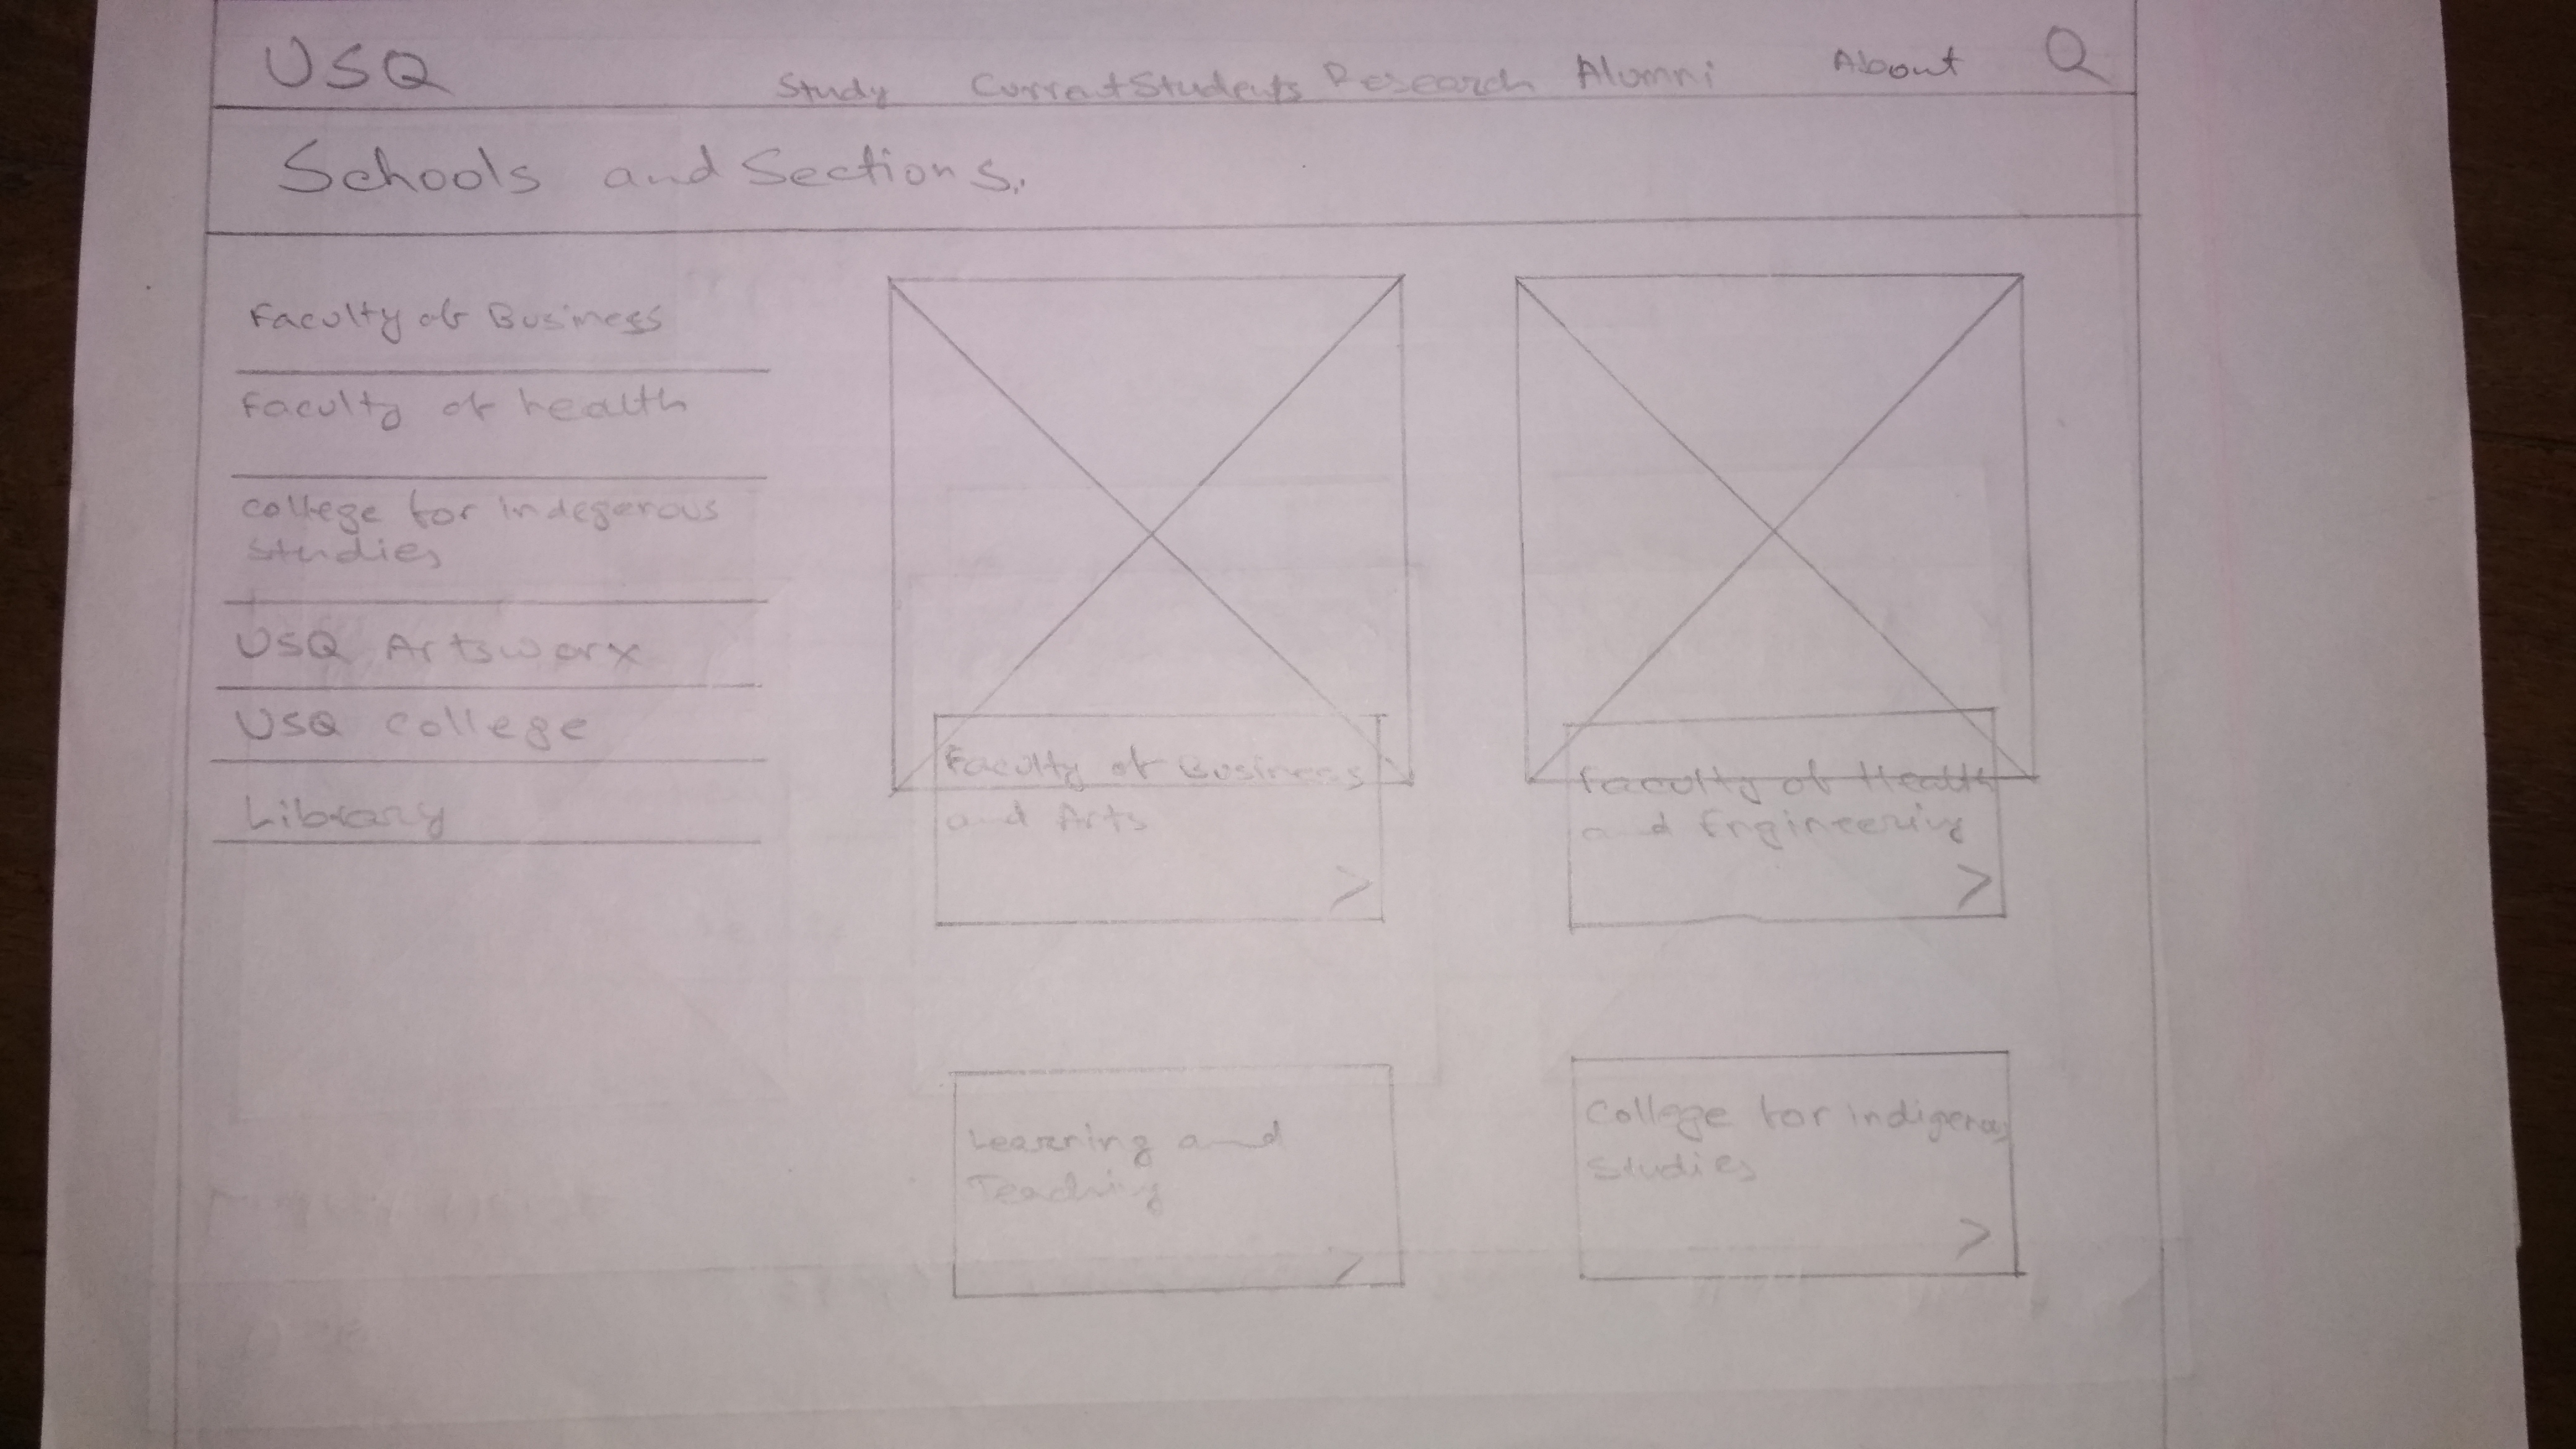 USQ
Study Current Students Research Alumni About
Schools and Sections.
Faculty of Business
Faculty of health
college for indegenous
studies
USQ Artsworx
USQ college
Library
Faculty of Business
and Arts
>
Faculty of Health
and Engineering
>
Learning and
Teaching
>
College for indigenous
studies
>